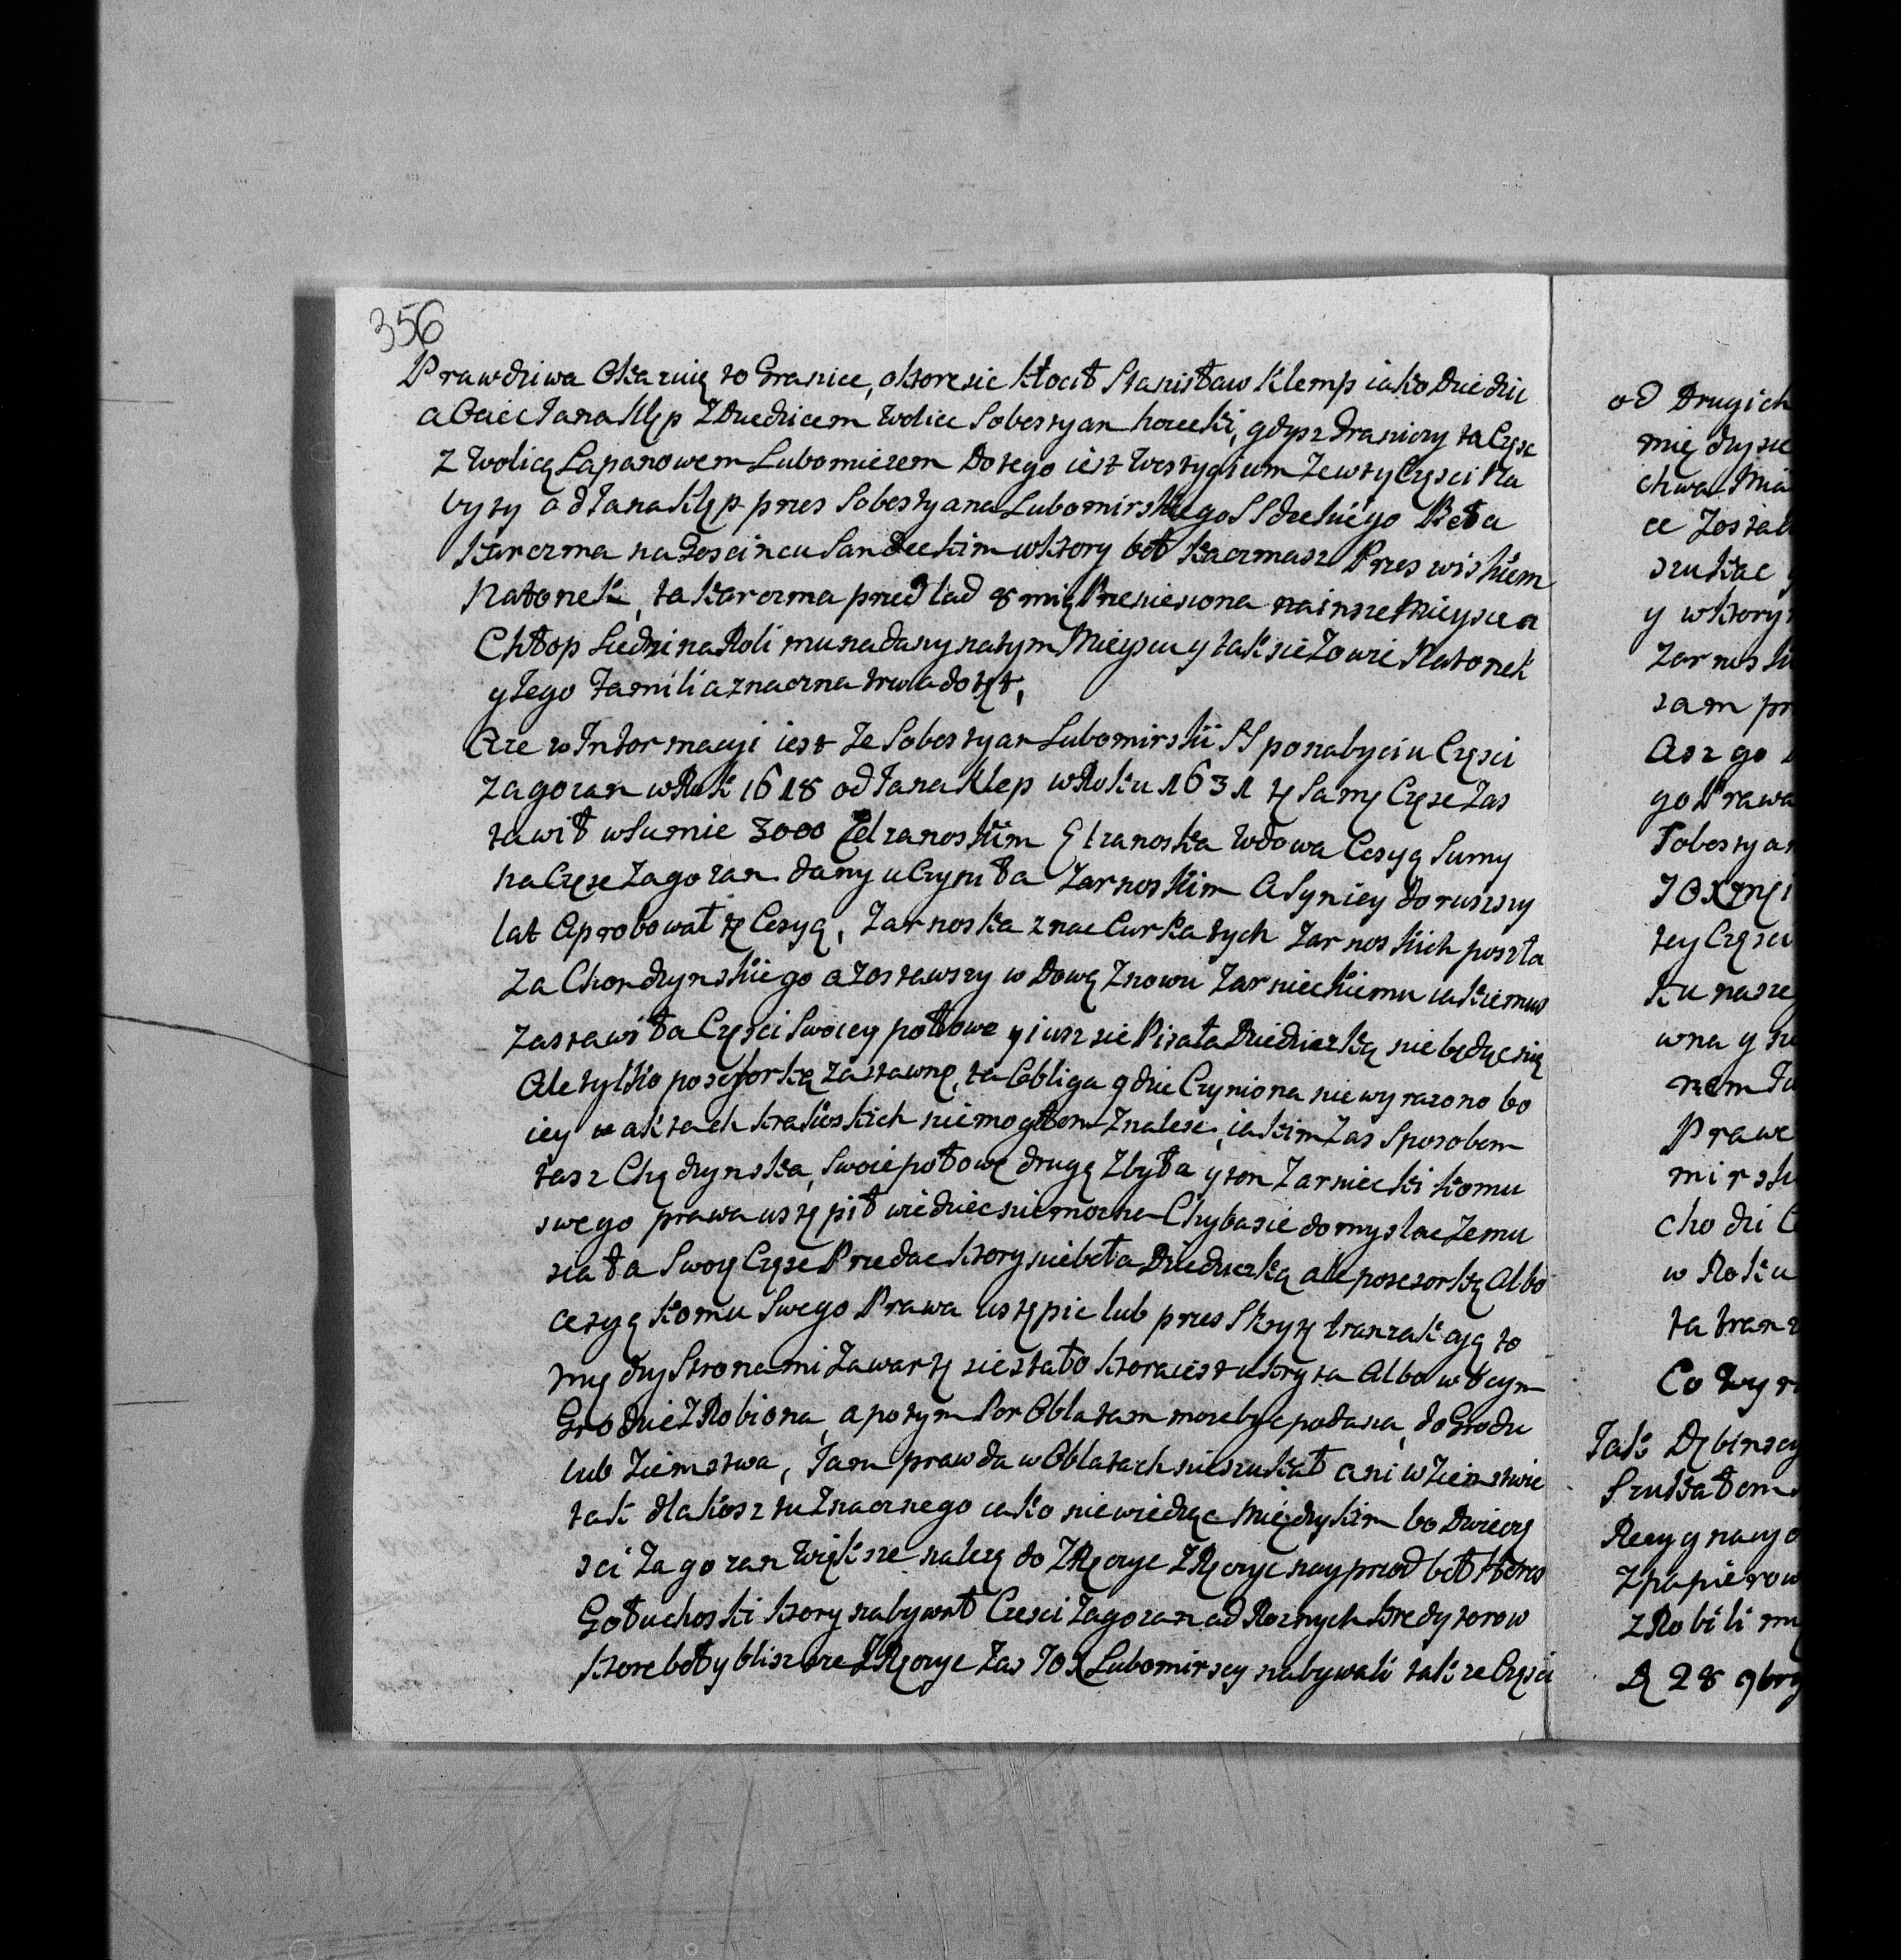 356
Prawdziwa Okazuię to Granice, oktore sie kłocił Stanisław Klemp iako Dziedzic
a Ociec Jana Klęp z Dziedzicem Wolice Sobestyan gdysz Graniczy ta Częsc
z Wolicą Lapanowem Lubomierzem Dotego iest Westygium Zewty Częsci Na
byty od Jana Klęp przes Sobestyana Lubomirskiego SSdeckiego Beła
Karczma na Goscincu Sandeckim wktory beł Kaczmasz Przeswiskiem
Natonek, ta karczma przed lad 8 mią Przeniesiona nainsze Mieysce a
Chłop Siedzi na Roli mu nadany natym Mieyscu y tak sie Zowie Natonek
y Jego Familia znaczna trwa dotęt,
Aze w Informacyi iest Ze Sobestyan Lubomirski SS ponabyciu Częsci
Zagorzan w Rok 1618 od Jana Klep w Roku 1631 tę Samę Częsc Zas
tawił wSumie 3000 wdowa Cesyą Sumy
na Częsc Zagorzan dany uczyniła Zarnoskim A Syn iey doruszszy
lat Aprobował tę Cesyą, Zarnoska znac Curka tych Zarnoskich poszła
za Chondzynskiego a zostawszy wDową Znowu Zarnieckiemu iakiemus
zastawiła Częsci Swoiey połowe y iusz sie Pisała Dziedziczką niebędąc nią
Ale tylko posesorką zastawną, ta Obliga gdzie Czyniona niewyrazono bo
iey w aktach krakoskich niemogłem Znalesc, iakim Zas Sposobem
tasz Chędzynska, Swoie połowę drugą Zbyła y ten Zarniecki komu
swego prawa ustąpił wiedziec niemozna Chyba sie domyslac Zemu
siała Swoię Częsc Przedac ktory niebeła Dziedziczką ale posesorką Albo
cesyą komu Swego Prawa ustąpic lub przes Skrytą tranzakcyą to
mędzy Stronami Zawartą sie stało ktora iest ukryta Albo w
Grodzie ZRobiona, a potym Per Oblatam moze byc podana, do Grodu
lub Ziemstwa, Jam prawda w Oblatach nieszukał ani w Ziemstwie
tak dla kosztu Znacznego iako niewiedząc Międzykim bo Dwie Czę
sci Zagorzan Większe nalezą do ZRęczyc ZRęczyc nayprzod beł
Gołuchoski ktory nabywał Czesci Zagorzan od Roznych kredytorow
ktore beły blisze ZRęczyc Zas JOX Lubomirscy nabywali takze Częsci
od Drugich
mię dzy sie
szukac
y w ktory
sam pr
Asz go
go Prawa
Sobestyan
tey Częsci
ku nasze
wna y
Prawe
mirsk
cho dzi
w Roku
ta tranz
Co Wyr
Jak Dębinscy
Szukałem
z papierow
z Robili
D 28 9bry